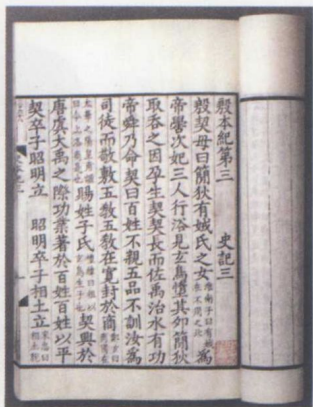 殷本紀第三　史記三
殷契母曰簡狄有娀氏之女為
帝嚳次妃三人行浴見玄鳥墮其卵簡狄
取吞之因孕生契契長而佐禹治水有功
帝舜乃命契曰百姓不親五品不訓汝為
司徒而敬敷五教五教在寬封於商
賜姓子氏　契興於
唐虞大禹之際功業著於百姓百姓以平
契卒子昭明立　昭明卒子相土立